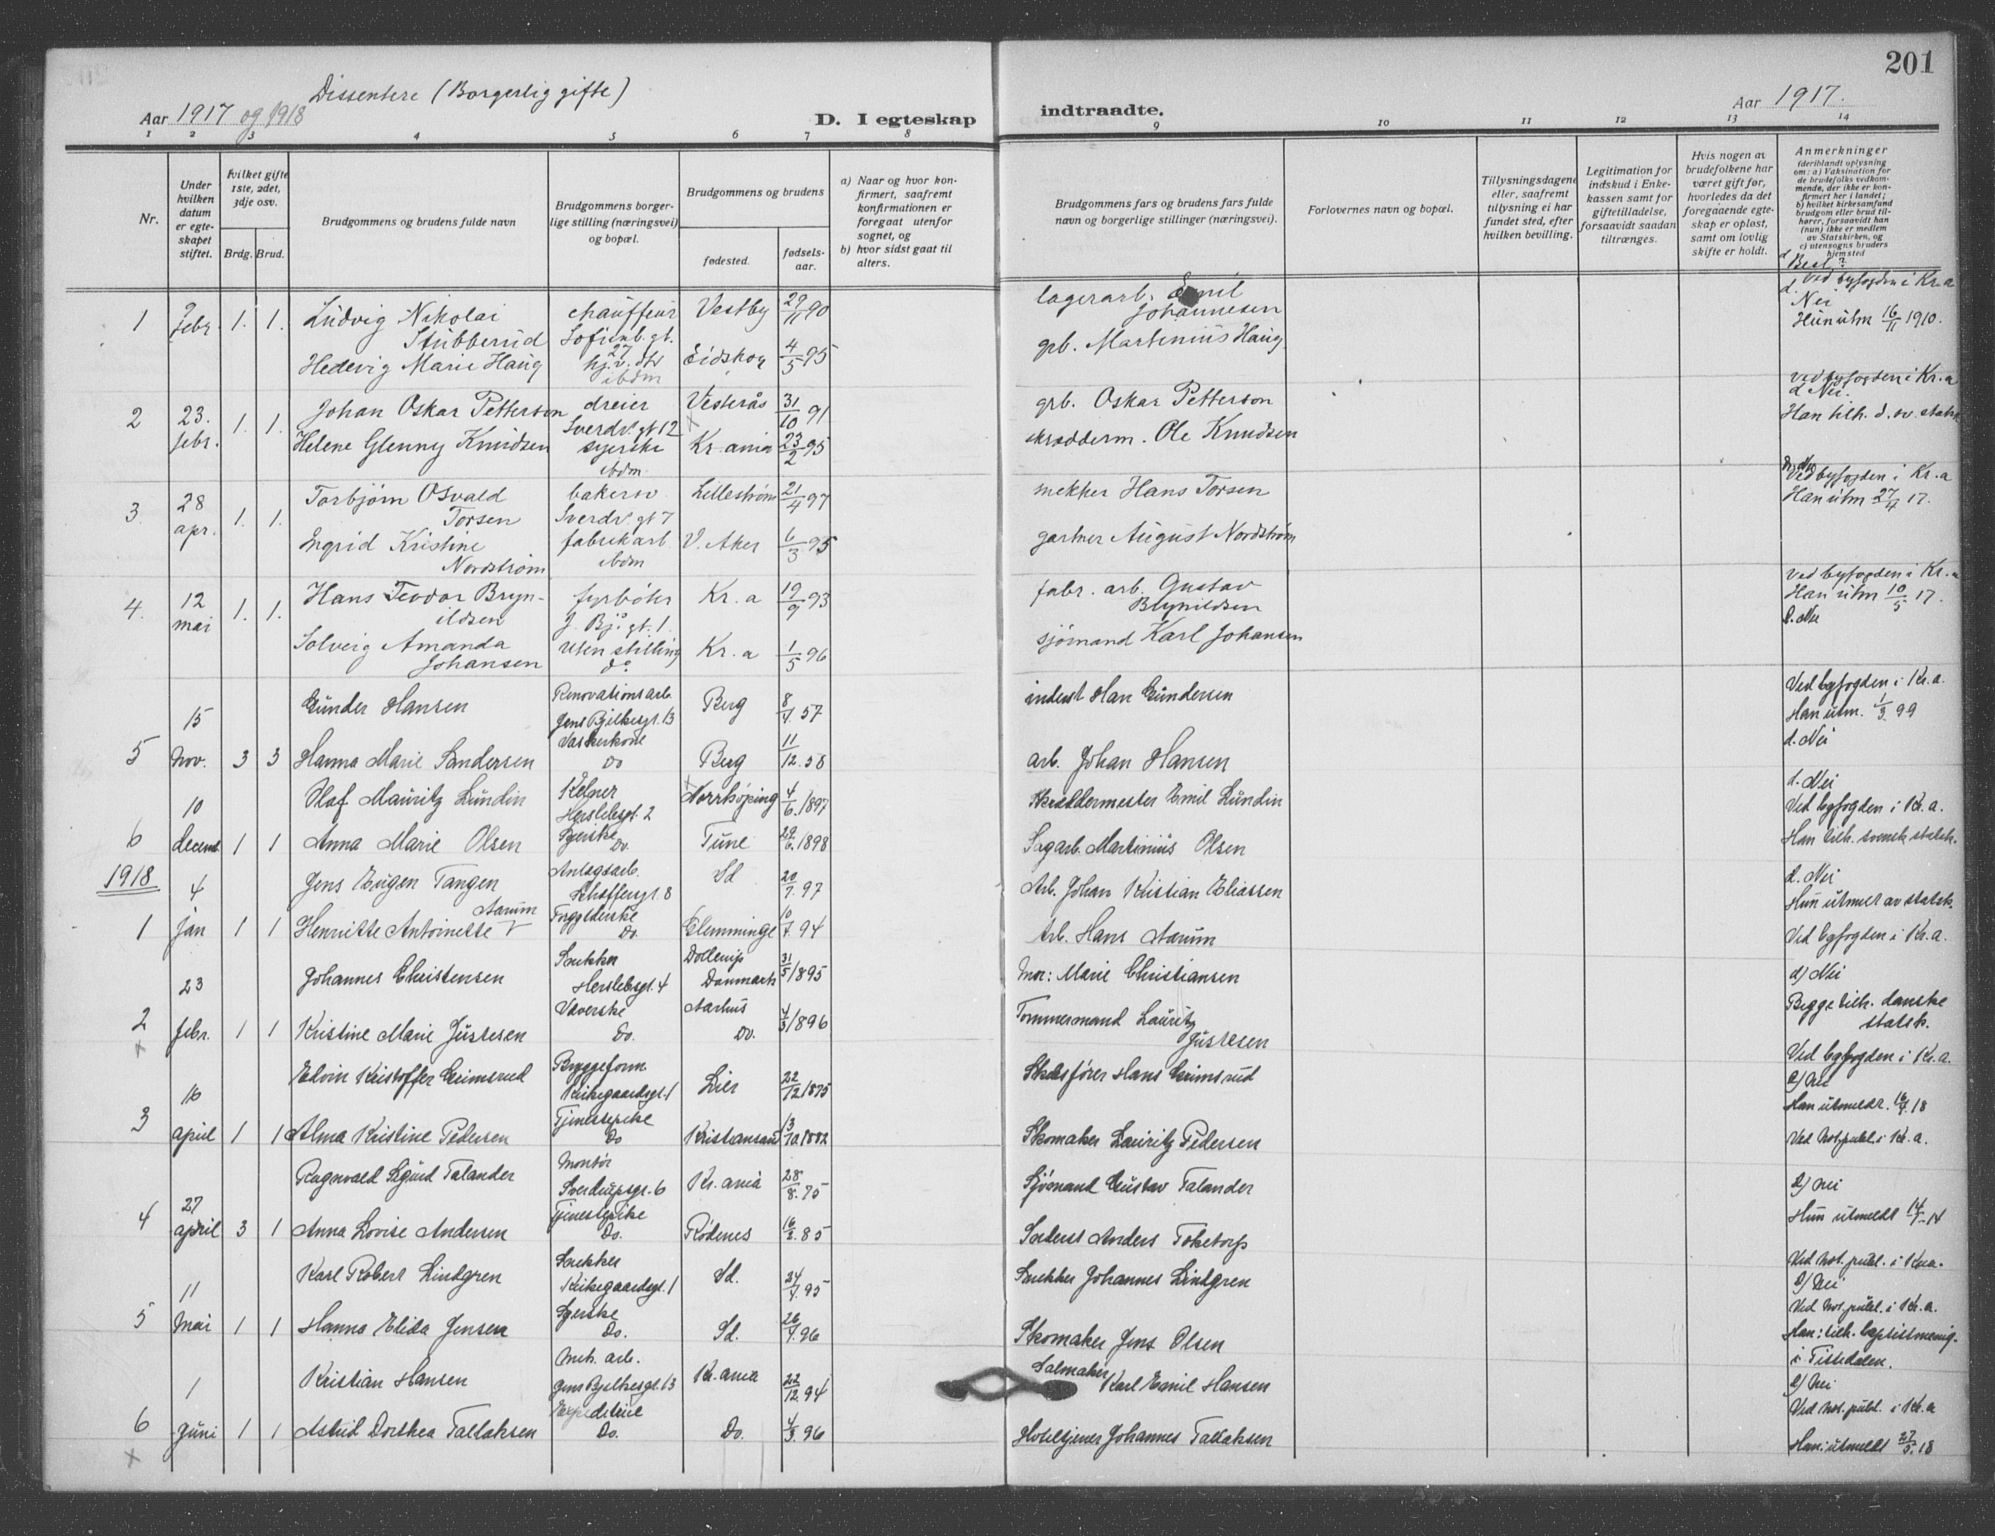 201
Dissentere (Borgerlig gifte)
Aar 1917 og 1918
D. I egteskap
indtraadte.
Aar 1917.
1 2 3 4 5 6 7 8 9 10 11 12 13 14
Nr.
Under hvilken datum er egteskapet stiftet.
Hvilket gifte 1ste, 2det, 3dje osv.
Brdg. Brud.
Brudgommens og brudens fulde navn
Brudgommens borgerlige stilling (næringsvei) og bopæl.
Brudgommens og brudens
fødested.
fødselsaar.
a) Naar og hvor konfirmert, saafremt konfirmationen er foregaat utenfor sognet, og
b) hvor sidst gaat til alters.
Brudgommens fars og brudens fars fulde navn og borgerlige stillinger (næringsvei).
Forlovernes navn og bopæl.
Tillysningsdagene eller, saafremt tillysning ei har fundet sted, efter hvilken bevilling.
Legitimation for indskud i Enkekassen samt for giftetilladelse, forsaavidt saadan tiltrænges.
Hvis nogen av brudefolkene har været gift før, hvorledes da det foregaaende egteskap er opløst, samt om lovlig skifte er holdt.
Anmerkninger
(deriblandt oplysning om: a) Vaksination for de brudefolks vedkommende, der ikke er konfirmert her i landet; b) hvilket kirkesamfund brudgom eller brud tilhører, forsaavidt han (hun) ikke er medlem av Statskirken, og c) utensogns bruders hjemsted
1 febr. 1. 1. Ludvig Nikolai Stubberud chauffeur Sofienb. gt. 27 Vestby 29/11 90 lagerarb. Emil Johannesen Ved byfogden i Kr.a
d. Nei
Hun utm 16/11 1910.
Hedevig Marie Haug hj.v. dtr ibdm Eidskog 4/5 95 grb. Martinius Haug
2 23. febr. 1. 1. Johan Oskar Petterson dreier Sverdr. gt 12 Vesterås 31/10 91 grb. Oskar Petterson Ved byfogden i Kr.a
d. Nei.
Han tilh. d. sv. statsk.
Helene Glenny Knudsen syerske ibdm Kr.ania 23/2 95 skrædderm. Ole Knudsen
3. 28 apr. 1. 1. Torbjørn Osvald Torsen bakersv. Sverdr. gt 7 Lillestrøm 21/4 97 mekker Hans Torsen d. Nei
Ved byfogden i Kr.a
Han utm 27/4 17.
Ingrid Kristine Nordstrøm fabrikarb ibdm V. Aker 6/3 95 gartner August Nordstrøm
4. 12 mai 1. 1. Hans Teodor Brynildsen fyrbøter J. Bj. gt. 1. Kr.a 19/9 93 fabr. arb. Gustav Brynildsen Ved byfogden i Kr.a
Han utm 10/5 17.
d. Nei
Solveig Amanda Johansen uten stilling do Kr.a 1/5 96 sjømand Karl Johansen
5 15 Nov. 3 3 Gunder Hansen Renovationsarb. Jens Bjelkesgt. 13 Berg 8/4 57 inderst Han Gundersen Ved byfogden i Kr.a.
Han utm. 1/3 99
d. Nei
Hanna Marie Sandersen Vaskerkone Do Berg 11/12 58 arb. Johan Hansen
6 10 Decemb 1 1 Olaf Mauritz Lundin Kelner Herslebsgt. 2 Norrköping 4/6 1897 Skræddermester Emil Lundin d. Nei
Ved byfogden i Kr.a.
Han tilh. svensk statsk.
Anna Marie Olsen Syerske Do. Tune 29/6 1898 Sagarb. Martinius Olsen
1918
1 4 jan 1 1 Jens Eugen Tangen Anlægsarb. Schæffersgt. 8 Sd 20/7 97 Arb. Johan Kristian Eliassen d. Nei
Hun utmeldt av statsk.
Henriette Antoinette Aarum Do. Glemminge 10/7 94 Arb. Hans Aarum Ved byfogden i Kr.a.
2 23 febr. 1 1 Johannes Christensen Snekker Herslebsgt. 4 Dollerup Danmark 31/5 1895 Mor: Marie Christiansen d) Nei
Begge tilh. danske statsk.
Kristine Marie Justesen Væverske Do. Aarhus Do. 4/3 1896 Tømmermand Lauritz Justesen
Ved byfogden i Kr.a.
3 16 april 1 1 Edvin Kristoffer Grimsrud Byggeform Kirkegaardsgt. 1 Lier 22/12 1875 Hans Grimsrud d) Nei
Han utmeldt. 16/4 18
Alma Kristine Pedersen Tjenestepike Do Kristiansand 13/10 1882 Skomaker Lauritz Pedersen Ved Not.publ. i Kr.a.
4 27 april 3 1 Ragnvald Sigurd Talander Montør Sverdrupsgt. 6 Kr.ania 28/8 75 Sjømand Gustav Talander d) Nei
Hun utmeldt 14/7 14
Anna Lovise Andersen Tjenestepike Do. Rødenes 16/2 85 Inderst Anders Toketorp
Ved Not.publ. i Kr.a.
5 11 Mai 1 1 Karl Robert Lindgren Snekker Kirkegaardsgt. 1 Sd. 24/4 95 Snekker Johannes Lindgren d) Nei
Ved Not.publ. i Kr.a.
Hanna Elida Jensen Syerske Do. Sd. 26/4 96 Skomaker Jens Olsen Han: tilh. baptistmenig. i Tistedalen.
6 1 juni 1 1 Kristian Hansen Mek. arb. Jens Bjelkesgt. 13 Kr.ania 22/12 94 Salmaker Karl Emil Hansen d) Nei
Ved Not.publ. i Kr.a
Astrid Dorthea Tallaksen Expeditrice Do. Do. 4/3 96 Hoteltjener Johannes Tallaksen Han: utmeldt 27/5 18